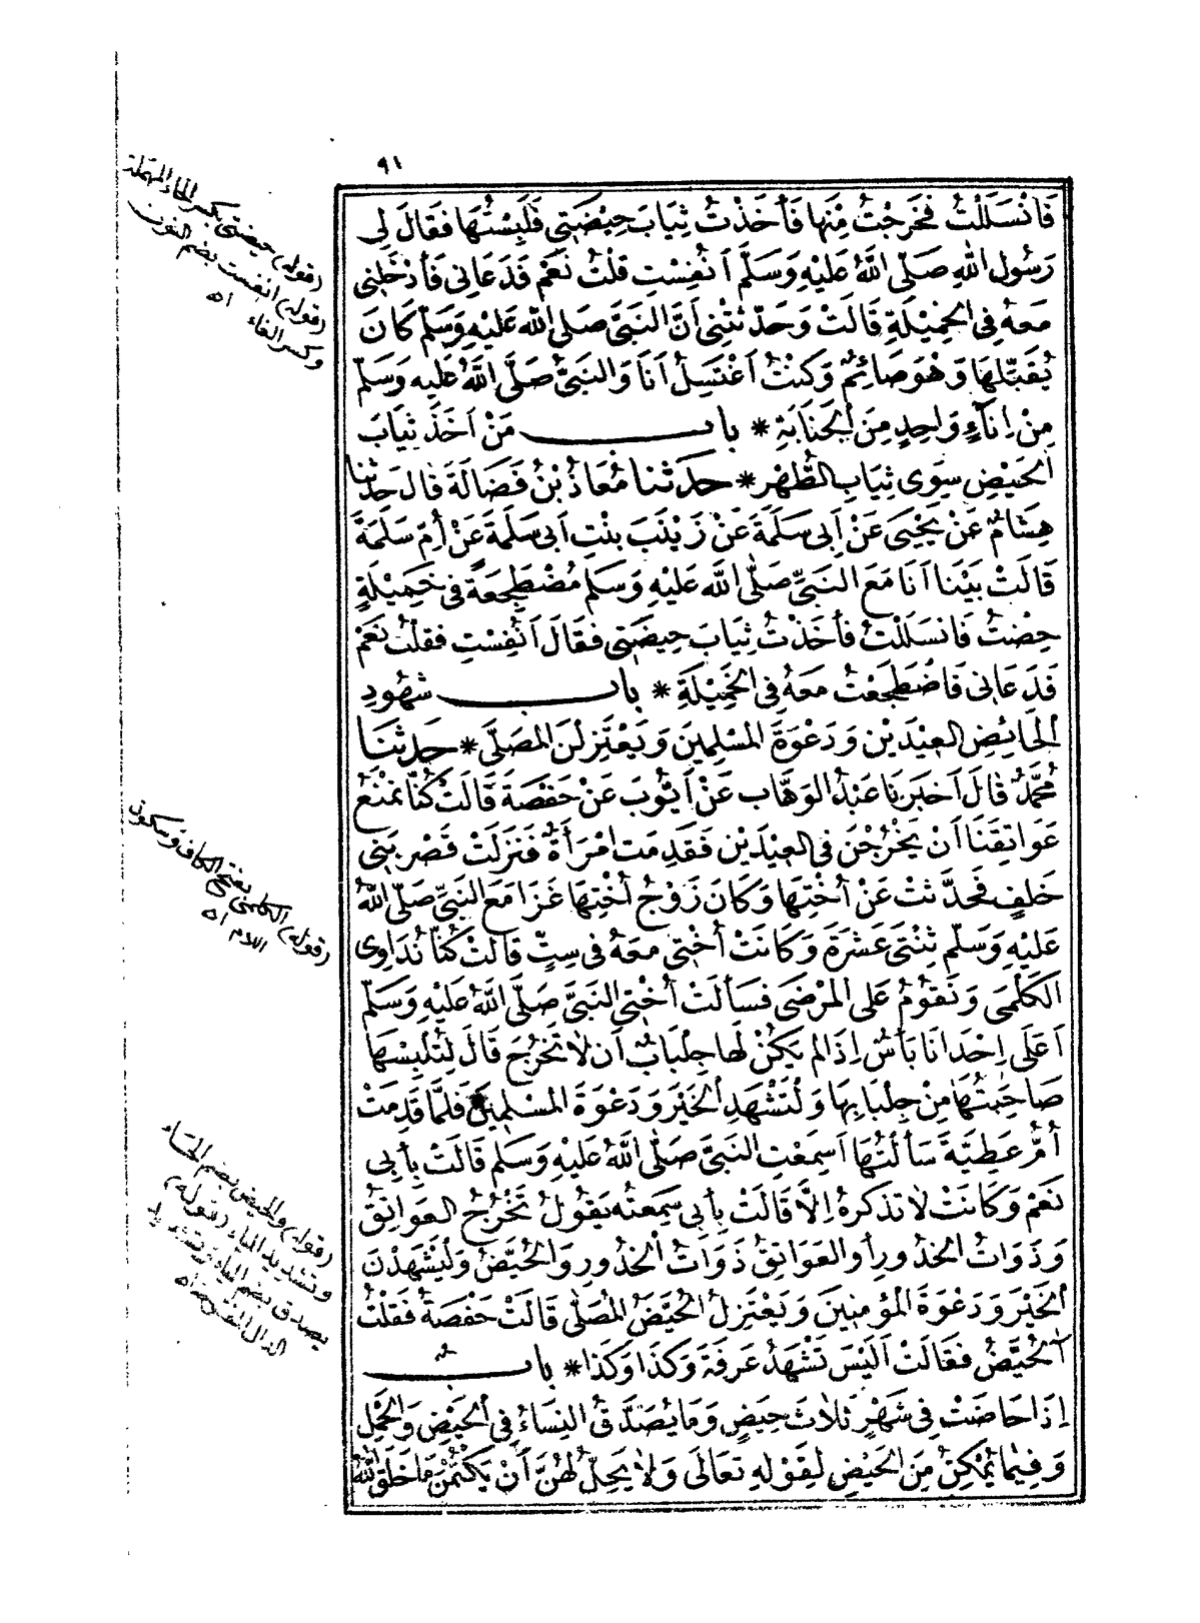 ٩١
فَانْسَلَلْتُ فَخَرَجْتُ مِنْهَا فَأَخَذْتُ ثِيَابَ حِيْضَتِي فَلَبِسْتُهَا فَقَالَ لِي
رَسُولُ اللهِ صَلَّى اللهُ عَلَيْهِ وَسَلَّمَ أَنُفِسْتِ قُلْتُ نَعَمْ فَدَعَانِي فَأَدْخَلَنِي
مَعَهُ فِي الْخَمِيلَةِ قَالَتْ وَحَدَّثَتْنِي أَنَّ النَّبِيَّ صَلَّى اللهُ عَلَيْهِ وَسَلَّمَ كَانَ
يُقَبِّلُهَا وَهُوَ صَائِمٌ وَكُنْتُ أَغْتَسِلُ أَنَا وَالنَّبِيُّ صَلَّى اللهُ عَلَيْهِ وَسَلَّمَ
مِنْ إِنَاءٍ وَاحِدٍ مِنَ الْجَنَابَةِ * باب مَنْ أَخَذَ ثِيَابَ
الْحَيْضِ سِوَى ثِيَابِ الطُّهْرِ * حدثنا مُعَاذُ بْنُ فَضَالَةَ قَالَ حَدَّثَنَا
هِشَامٌ عَنْ يَحْيَى عَنْ أَبِي سَلَمَةَ عَنْ زَيْنَبَ بِنْتِ أَبِي سَلَمَةَ عَنْ أُمِّ سَلَمَةَ
قَالَتْ بَيْنَا أَنَا مَعَ النَّبِيِّ صَلَّى اللهُ عَلَيْهِ وَسَلَّمَ مُضْطَجِعَةً فِي خَمِيْلَةٍ
حِضْتُ فَانْسَلَلْتُ فَأَخَذْتُ ثِيَابَ حِيضَتِي فَقَالَ أَنُفِسْتِ فَقُلْتُ نَعَمْ
فَدَعَانِي فَاضْطَجَعْتُ مَعَهُ فِي الْخَمِيْلَةِ * باب شُهُودِ
الْحَائِضِ الْعِيْدَيْنِ وَدَعْوَةَ الْمُسْلِمِيْنَ وَيَعْتَزِلْنَ الْمُصَلَّى * حدثنا
مُحَمَّدٌ قَالَ أَخْبَرَنَا عَبْدُ الْوَهَّابِ عَنْ أَيُّوبَ عَنْ حَفْصَةَ قَالَتْ كُنَّا نَمْنَعُ
عَوَاتِقَنَا أَنْ يَخْرُجْنَ فِي الْعِيْدَيْنِ فَقَدِمَتِ امْرَأَةٌ فَنَزَلَتْ قَصْرَ بَنِي
خَلَفٍ فَحَدَّثَتْ عَنْ أُخْتِهَا وَكَانَ زَوْجُ أُخْتِهَا غَزَا مَعَ النَّبِيِّ صَلَّى اللهُ
عَلَيْهِ وَسَلَّمَ ثِنْتَيْ عَشْرَةَ وَكَانَتْ أُخْتِي مَعَهُ فِي سِتٍّ قَالَتْ كُنَّا نُدَاوِي
الْكَلْمَى وَنَقُوْمُ عَلَى الْمَرْضَى فَسَأَلَتْ أُخْتِي النَّبِيَّ صَلَّى اللهُ عَلَيْهِ وَسَلَّمَ
أَعَلَى إِحْدَانَا بَأْسٌ إِذَا لَمْ يَكُنْ لَهَا جِلْبَابٌ أَنْ لَا تَخْرُجَ قَالَ لِتُلْبِسْهَا
صَاحِبَتُهَا مِنْ جِلْبَابِهَا وَلْتَشْهَدِ الْخَيْرَ وَدَعْوَةَ الْمُسْلِمِيْنَ فَلَمَّا قَدِمَتْ
أُمُّ عَطِيَّةَ سَأَلْتُهَا أَسَمِعْتِ النَّبِيَّ صَلَّى اللهُ عَلَيْهِ وَسَلَّمَ قَالَتْ بِأَبِي
نَعَمْ وَكَانَتْ لَا تَذْكُرُهُ إِلَّا قَالَتْ بِأَبِي سَمِعْتُهُ يَقُولُ تَخْرُجُ الْعَوَاتِقُ
وَذَوَاتُ الْخُدُورِ أَوِ الْعَوَاتِقُ ذَوَاتُ الْخُدُورِ وَالْحُيَّضُ وَلْيَشْهَدْنَ
الْخَيْرَ وَدَعْوَةَ الْمُؤْمِنِيْنَ وَيَعْتَزِلُ الْحُيَّضُ الْمُصَلَّى قَالَتْ حَفْصَةُ فَقُلْتُ
آلْحُيَّضُ فَقَالَتْ أَلَيْسَ تَشْهَدُ عَرَفَةَ وَكَذَا وَكَذَا * باب
إِذَا حَاضَتْ فِي شَهْرٍ ثَلَاثَ حِيَضٍ وَمَا يُصَدَّقُ النِّسَاءُ فِي الْحَيْضِ وَالْحَمْلِ
وَفِيْمَا يُمْكِنُ مِنَ الْحَيْضِ لِقَوْلِهِ تَعَالَى وَلَا يَحِلُّ لَهُنَّ أَنْ يَكْتُمْنَ مَا خَلَقَ اللهُ
(قوله) حيضتي بكسر الحاء المهملة
(قوله) انفست بضم النون
وكسر الفاء اه
(قوله) الكلمى بفتح الكاف وسكون
اللام اه
(قوله) والحيض بضم الحاء
وتشديد الياء (قوله)
يصدق بضم الياء وتشديد
الدال المفتوحة اه